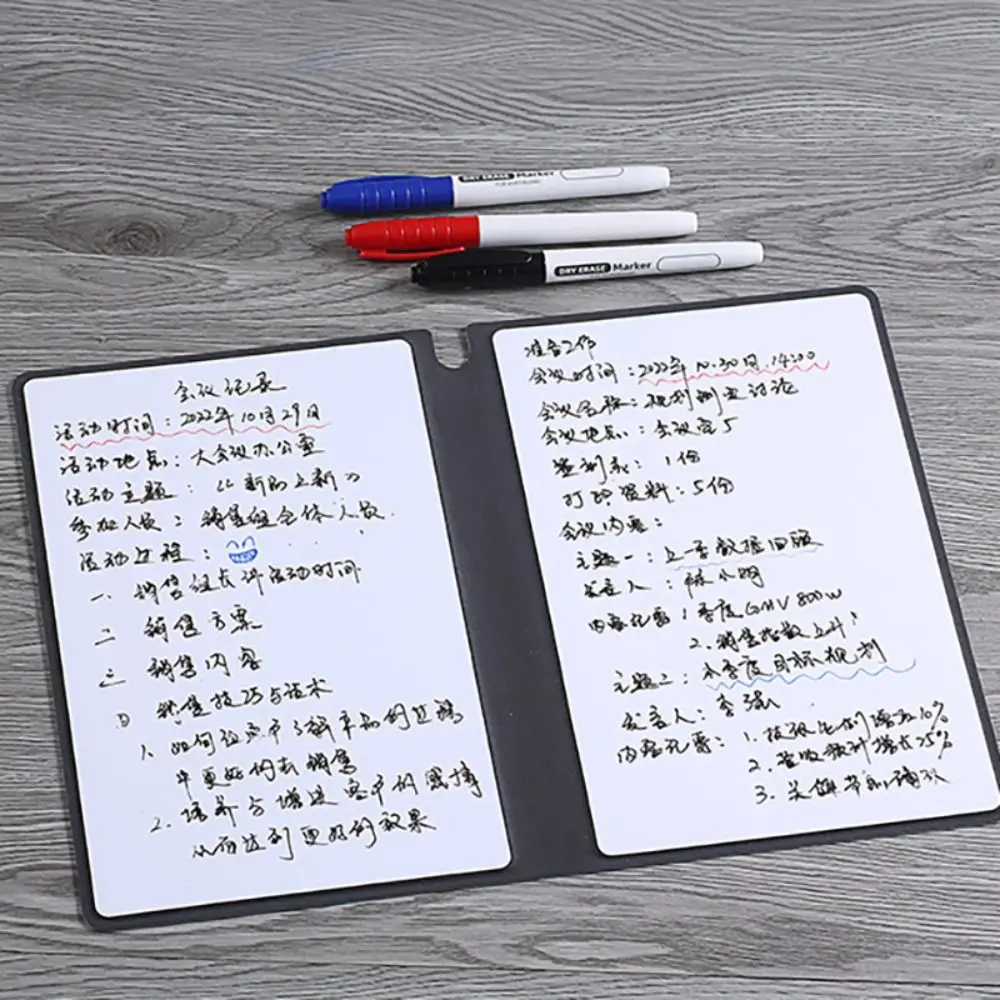 DRY ERASE Marker
DRY ERASE Marker
会议记录
活动时间：2022年10月29日
活动地点：大会议办公室
活动主题：“新的上新”
参加人员：销售组全体人员
活动过程：
一、销售组长讲活动时间
二 销售方案
三 销售内容
四 销售技巧与话术
1. 如何让客户了解产品的过程
中更好的去销售
2. 培养与增进客户的感情
从而达到更好的效果
准备工作
会议时间：2022年10.30日.14:00
会议名称：规划制定讨论
会议地点：会议室5
签到表：1份
打印资料：5份
会议内容：
主题一：上一季数据回顾
发言人：陈小明
内容记要：1季度GMV 800w
2.销售指数上升？
主题二：本季度目标规划
发言人：李强
内容记要：1.投放比例增加10%
2.营收预计增长25%
3.关键节点